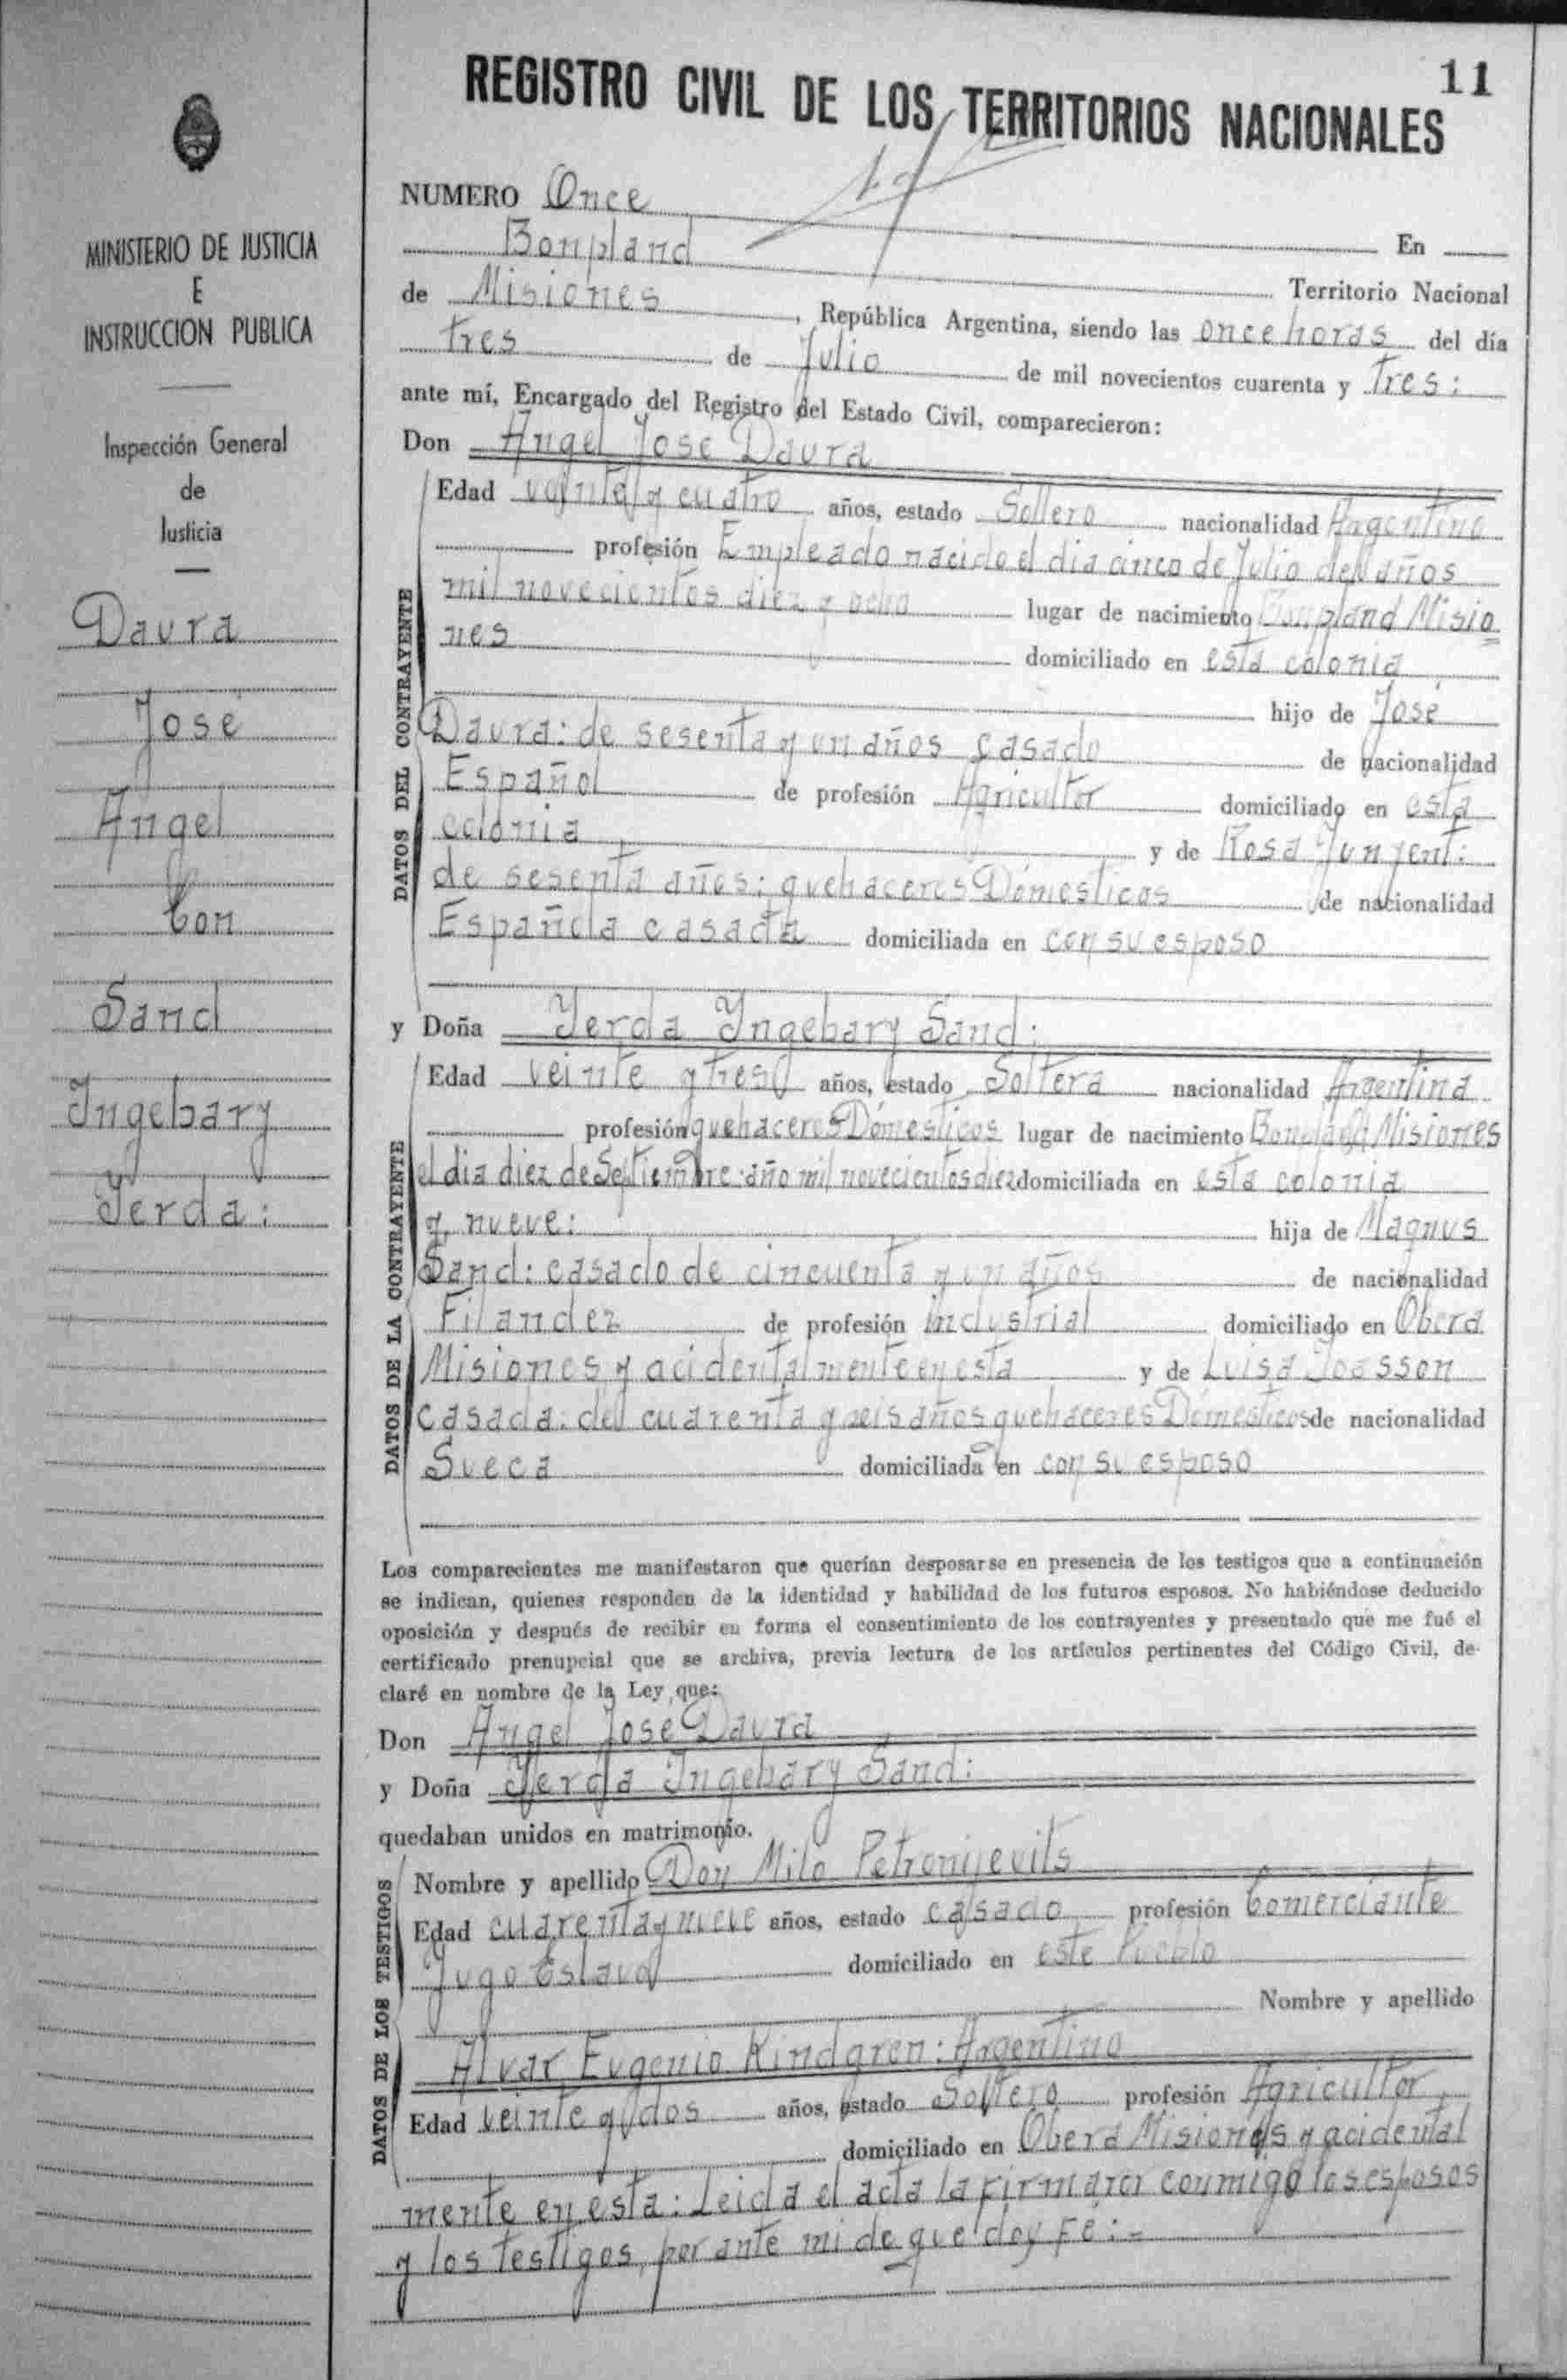 11
REGISTRO CIVIL DE LOS TERRITORIOS NACIONALES
MINISTERIO DE JUSTICIA
E
INSTRUCCION PUBLICA
Inspección General
de
Justicia
Davra
José
Angel
Con
Sand
Ingebary
Yerda:
NUMERO Once
Bonpland En
de Misiones Territorio Nacional
, República Argentina, siendo las once horas del día
tres de Julio de mil novecientos cuarenta y tres:
ante mí, Encargado del Registro del Estado Civil, comparecieron:
Don Angel Jose Davra
Edad veinte y cuatro años, estado Soltero nacionalidad Argentino
profesión Empleado nacido el dia cinco de Julio del años
mil novecientos diez y ocho lugar de nacimiento Bonpland Misio
nes domiciliado en esta colonia
hijo de José
Davra: de sesenta y un años casado de nacionalidad
Español de profesión Agricultor domiciliado en esta
colonia y de Rosa Junjent:
de sesenta años: quehaceres Domesticos de nacionalidad
Española casada domiciliada en con su esposo
DATOS DEL CONTRAYENTE
y Doña Yerda Ingebary Sand:
Edad veinte y tres años, estado Soltera nacionalidad Argentina
profesión quehaceres Domesticos lugar de nacimiento Bonpland Misiones
el dia diez de Septiembre: año mil novecientos diez domiciliada en esta colonia
y nueve: hija de Magnus
Sand: casado de cincuenta y un años de nacionalidad
Filandez de profesión industrial domiciliado en Obera
Misiones y acidentalmente en esta y de Luisa Joasson
casada: del cuarenta y seis años quehaceres Domesticos de nacionalidad
Sueca domiciliada en con su esposo
DATOS DE LA CONTRAYENTE
Los comparecientes me manifestaron que querían desposarse en presencia de los testigos que a continuación
se indican, quienes responden de la identidad y habilidad de los futuros esposos. No habiéndose deducido
oposición y después de recibir en forma el consentimiento de los contrayentes y presentado que me fué el
certificado prenupcial que se archiva, previa lectura de los artículos pertinentes del Código Civil, de-
claré en nombre de la Ley que:
Don Angel Jose Davra
y Doña Yerda Ingebary Sand:
quedaban unidos en matrimonio.
Nombre y apellido Don Milo Petronijevits
Edad cuarenta y nueve años, estado casado profesión Comerciante
Jugo Eslavo domiciliado en este Pueblo
Nombre y apellido
Alvar Eugenio Kindgren: Argentino
Edad veinte y dos años, estado Soltero profesión Agricultor,
domiciliado en Obera Misiones y acidental
mente en esta: Leida el acta la firmaron conmigo los esposos
y los testigos, por ante mi de que doy Fe:=
DATOS DE LOS TESTIGOS